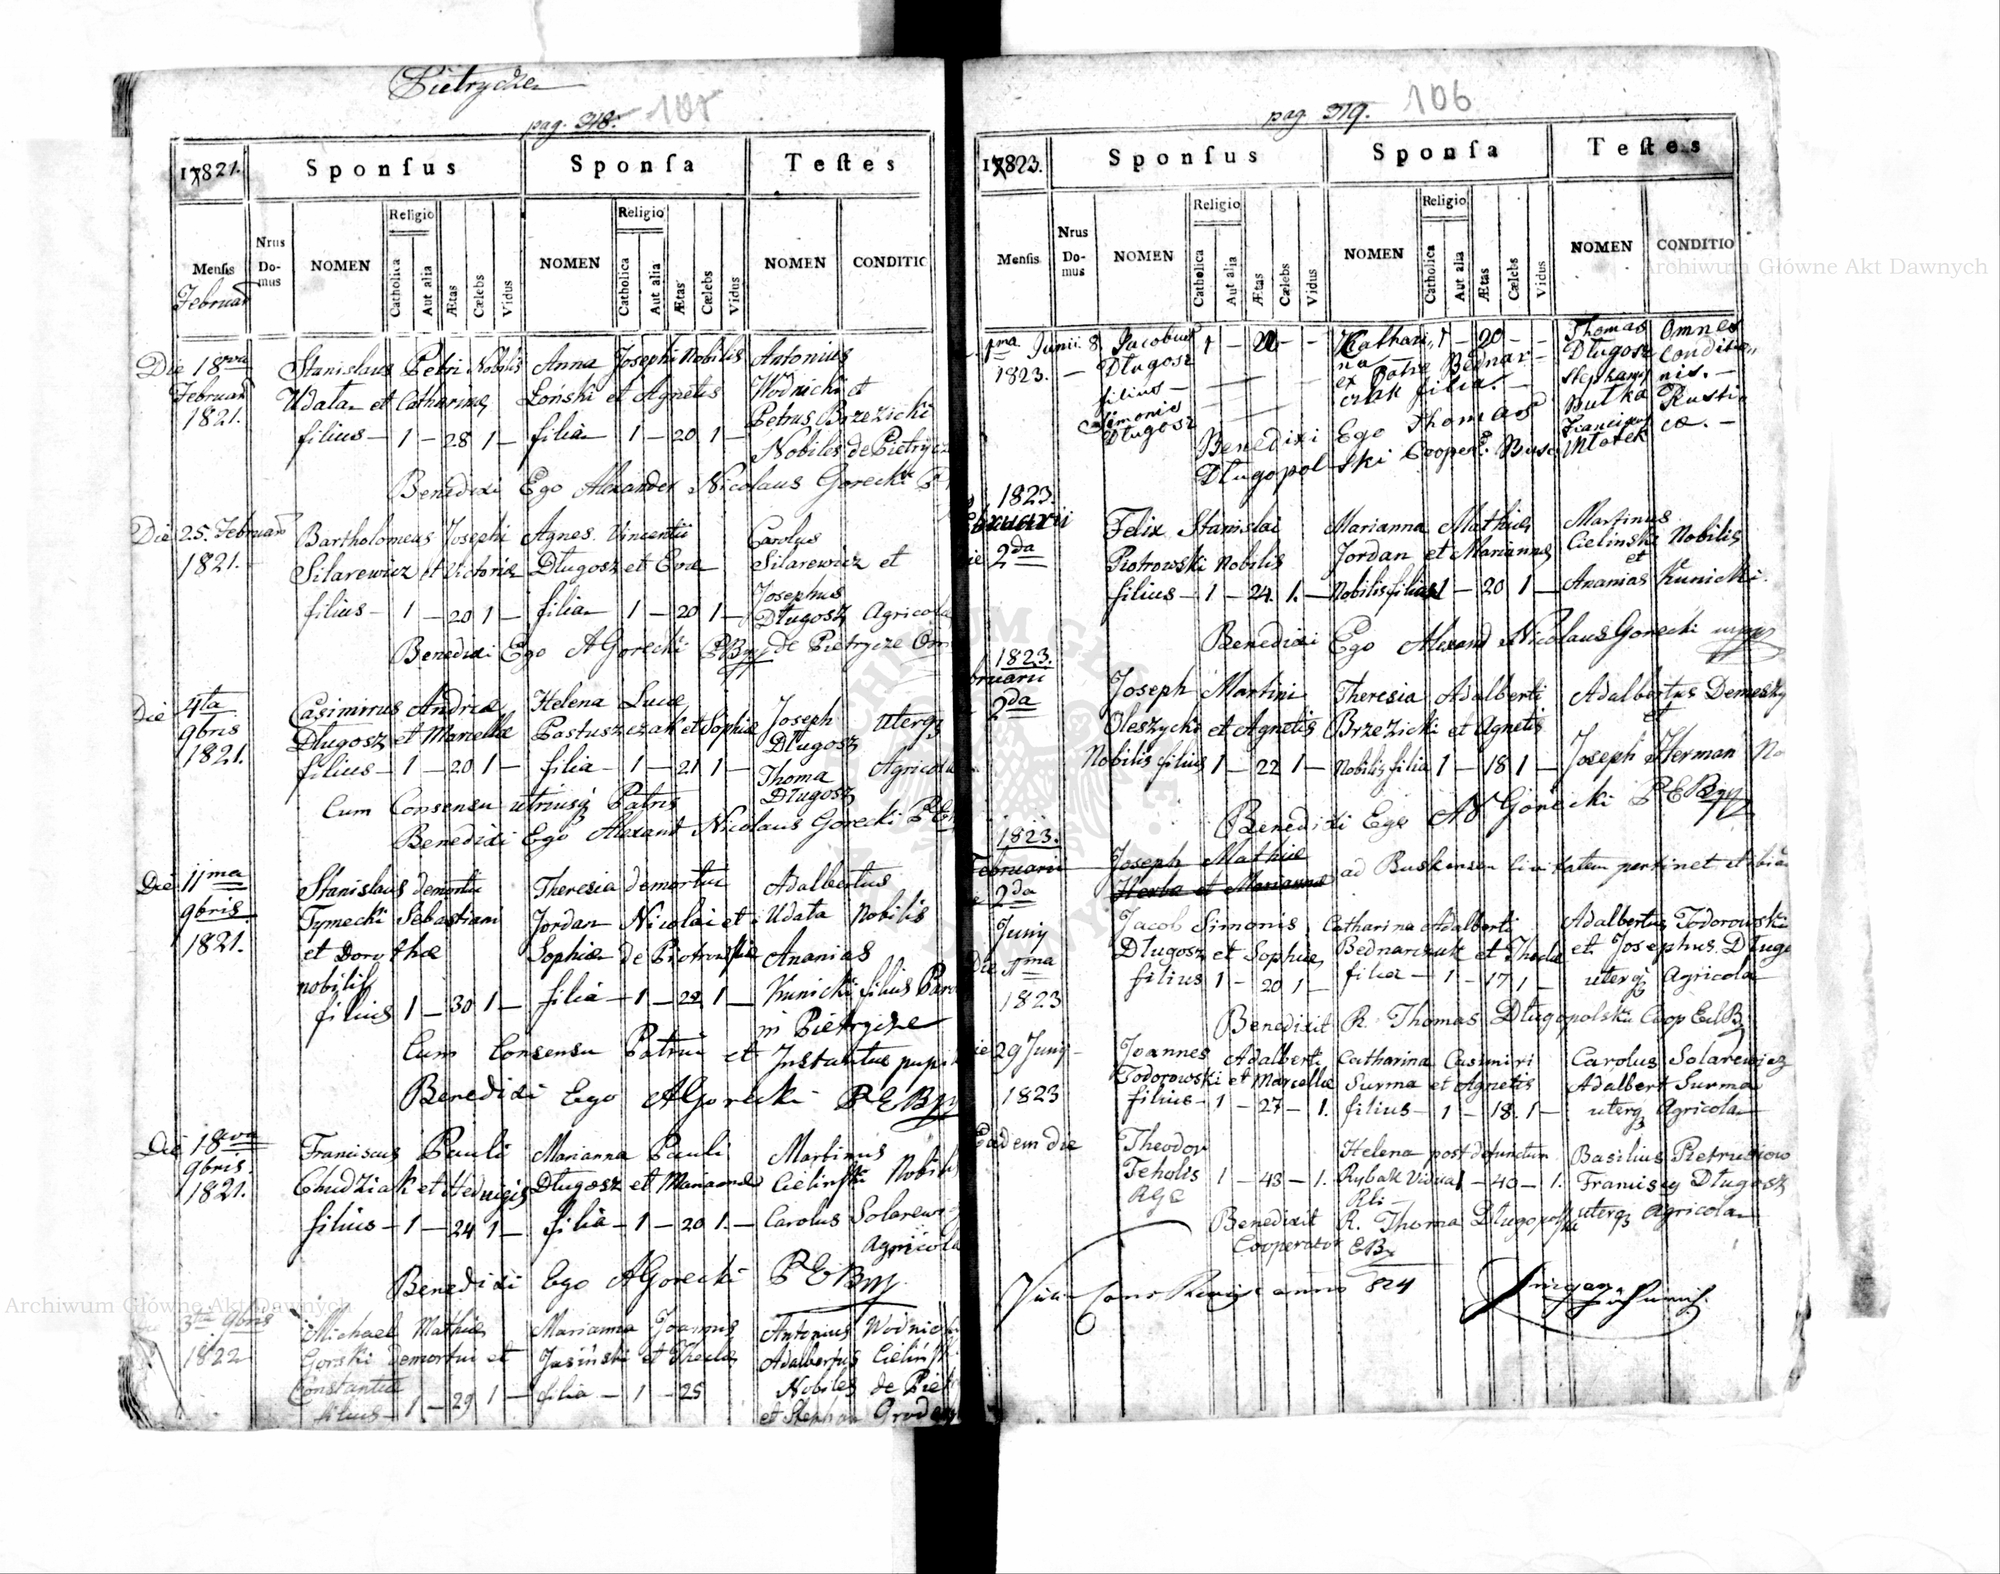 Pietrycze
pag. 318.
17821.
Sponſus
Sponſa
Teſtes
Religio
Religio
Nrus
Do-
mus
Menſis
NOMEN
Catholica
Aut alia
Ætas
Cælebs
Vidus
NOMEN
Catholica
Aut alia
Ætas
Cælebs
Vidus
NOMEN
CONDITIO
Februar
Die 18va Stanislaus Petri Nobilis Anna Josephi Nobilis Antonius
Februar Udata et Catharinæ Łoński et Agnetis Wodnicki et
1821. Petrus Brzezicki
filius - 1 - 28 1 - filia 1 - 20 1 - Nobiles de Pietrycze
Benedixi Ego Alexander Nicolaus Gorecki P
Die 25. Februar Bartholomeus Josephi Agnes Vincentii Carolus
1821. Silarewicz et Victoriæ Długosz et Evæ Silarewicz et
Josephus
filius - 1 - 20 1 - filia 1 - 20 1 - Długosz Agricola
Benedixi Ego AGorecki PEB de Pietrycze
Die 4ta Casimirus Andreæ Helena Lucæ Joseph uterq
9bris Długosz et Marcellæ Pastuszczak et Sophiæ Długosz
1821. filius - 1 - 20 1 - filia - 1 - 21 1 - Thoma Agricola
Długosz
Cum Consensu utriusq Patris
Benedixi Ego Alexand Nicolaus Gorecki
Die 11ma Stanislaus demortui Theresia demortui Adalbertus
9bris Tymecki Sebastiani Jordan Nicolai et Udata Nobilis
1821. et Dorothæ Sophiæ de Piotrowskie Ananias
nobilis
filius 1 - 30 1 - filia - 1 - 22 1 - Kunicki filius
in Pietrycze
Cum Consensu Patrui et Instantia
Benedixi Ego AGorecki PEB
Die 18va Franciscus Pauli Marianna Pauli Martinus
9bris. Chudziak et Hedvigis Długosz et Mariannæ Cielinski Nobilis
1821. filius - 1 - 24 1 - filia - 1 - 20 1. - Carolus Solarewicz
Agricola
Benedixi Ego AGorecki PEB
3tia 9bris Michael Mathiæ Marianna Joannis Antonius Wodnicki
1822 Gorski demortui et Jasiński et Theclæ Adalbertus Cielinski
Constantiæ Nobiles de Pietr
filius - 1 - 29 1 - filia - 1 - 25 et Stephan
pag. 319. 106
17823.
Sponſus
Sponſa
Teſtes
Religio
Religio
Nrus
Do-
mus
Menſis
NOMEN
Catholica
Aut alia
Ætas
Cælebs
Vidus
NOMEN
Catholica
Aut alia
Ætas
Cælebs
Vidus
NOMEN
CONDITIO
1ma Junii 8. Jacobus 1 - - - Kathari- 1 - 20 - - Thomas Omnes
1823. - Długosz na Długosz condition
filius - ex Patre Bednar- Stephany nis. -
Simonis czak filia. - Butka Rusti
Długosz Francisus cæ. -
Benedixi Ego Thomas
Długopolski Cooper. Busc
1823.
Februarii Felix Stanislai Marianna Mathiæ Martinus
Die 2da Piotrowski Nobilis Jordan et Mariannæ Cielinski Nobilis
et
filius - 1 - 24. 1. - Nobilis filia 1 - 20 1 - Ananias Kunicki.
Benedixi Ego Alexand Nicolaus Gorecki
1823.
Februarii Joseph Martini Theresia Adalberti Adalbertus
2da Oleszycki et Agnetis Brzezicki et Agnetis et
Nobilis filius 1 - 22 1 - Nobilis filia 1 - 18 1 - Joseph Herman No
Benedixi Ego AN Gorecki PEB
1823.
Februarii Joseph Mathiæ ad Buskensem Civitatem pertinet
2da Herba et Mariannæ
Juny Jacob Simonis Catharina Adalberti Adalbertus Todorowski
Die 1ma Długosz et Sophiæ Bednarczuk et Theclæ et Josephus Długo
1823 filius 1 - 20 1 - filia - 1 - 17 1 - uterq Agricola
Benedixit R. Thomas Długopolski Coop
Die 29 Juny Joannes Adalberti Catharina Casimiri Carolus Solarewicz
Todorowski et Marcellæ Surma et Agnetis Adalbert Surma
1823 filius - 1 - 27 - 1. filius - 1 - 18. 1 - uterq Agricola
Eadem die Theodor Helena post defunctum Basilius
Teholis 1 - 43 - 1. Rybak Vidua 1 - 40 - 1. Francisq Długosz
RGC Rli - uterq Agricola
Benedixit R. Thoma Długopolski
Cooperator EB
anno 824
Archiwum Główne Akt Dawnych
Archiwum Główne Akt Dawnych